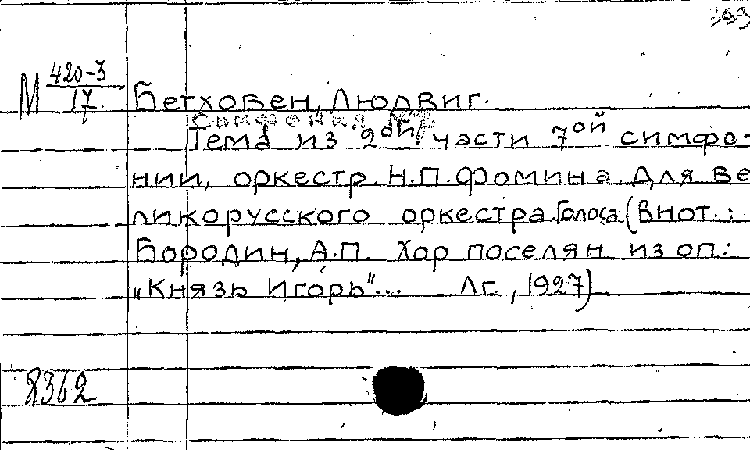 М 420-3/17
Бетховен, Людвиг.
Симфония №7
Тема из 2ой части 7ой симфо-
нии, оркестр. Н.П. Фомина. Для ве
ликорусского оркестра. Голоса (В нот.:
Бородин, А.П. Хор поселян из оп:
„Князь Игорь"... Лг., 1927)
8362